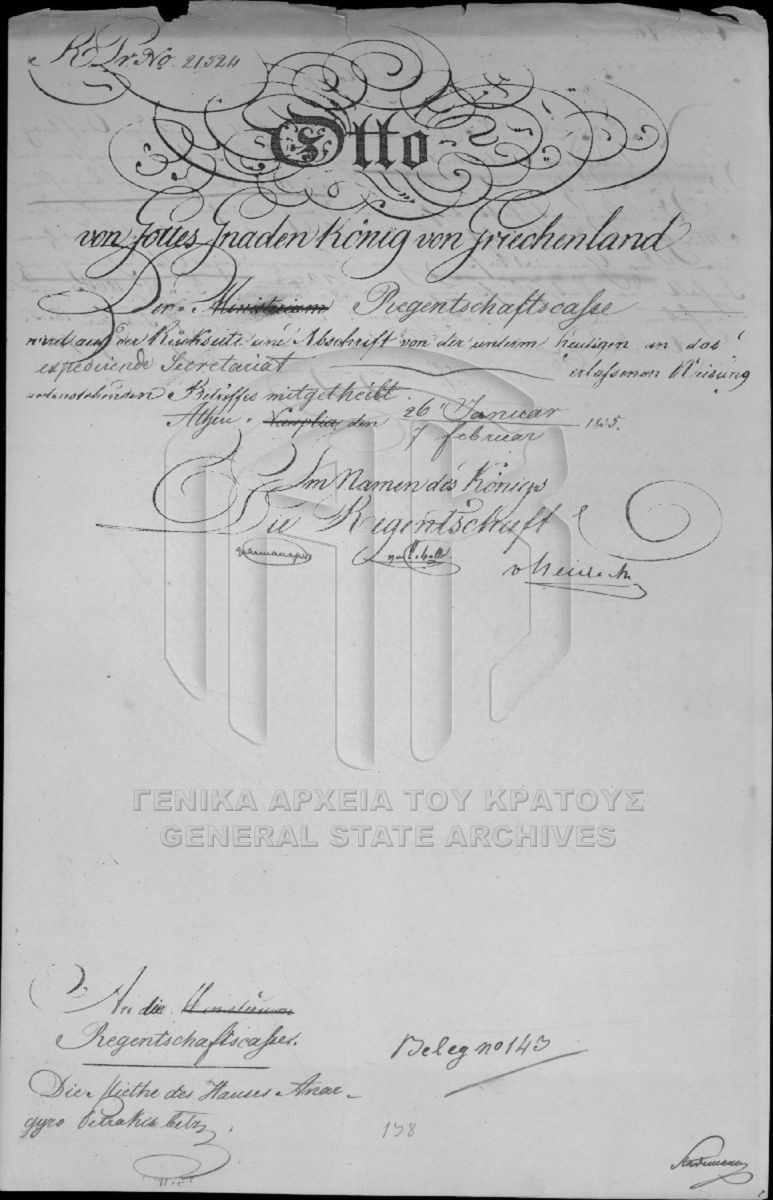 R. Pr. No. 21524
Otto
von Gottes Gnaden König von Griechenland
Der Ministerium Regentschaftscasse
wird auf der Rückseite eine Abschrift von der unterm heutigen an das
expedirende Secretariat erlassenen Weisung
untenstehenden Betreffes mitgetheilt.
Athen Nauplia den 26 Januar / 7 Februar 1835.
Im Namen des Königs
Die Regentschaft
v Heideck
ΓΕΝΙΚΑ ΑΡΧΕΙΑ ΤΟΥ ΚΡΑΤΟΥΣ
GENERAL STATE ARCHIVES
An die Ministerium
Regentschaftscasse.
Beleg no 143
Die Miethe des Hauses Anar-
gyro Petrakis betr.
138